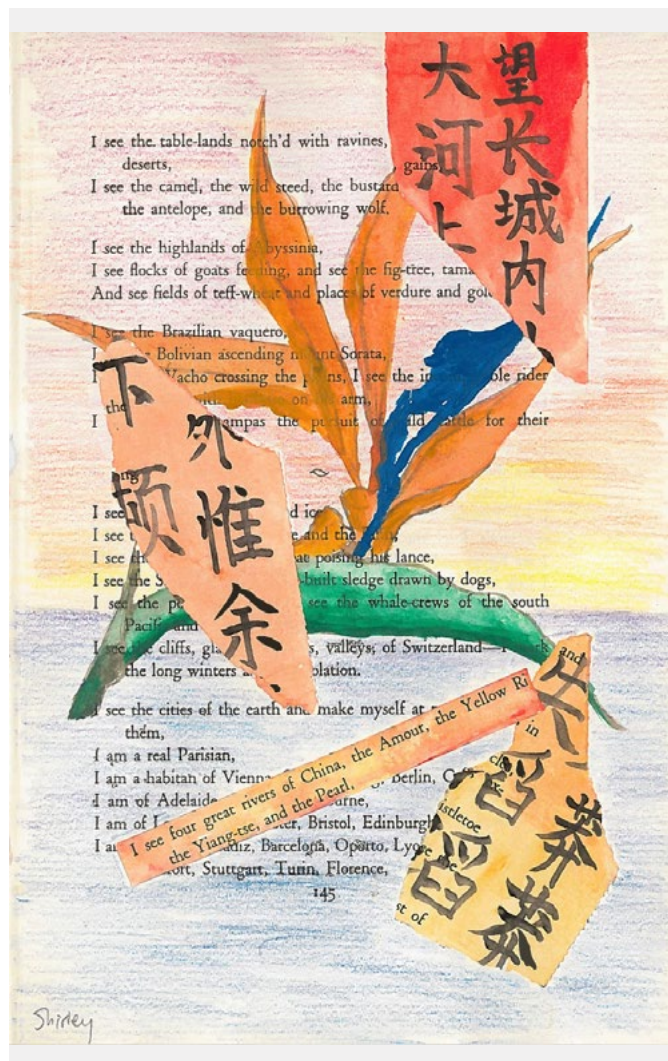 望长城内
大河上
I see the table-lands notch'd with ravines,
deserts,
gains
I see the camel, the wild steed, the bustard
the antelope, and the burrowing wolf,
I see the highlands of Abyssinia,
I see flocks of goats feeding, and see the fig-tree, tama
And see fields of teff-wheat and places of verdure and gold
I see the Brazilian vaquero,
Bolivian ascending mount Sorata,
Wacho crossing the plains, I see the rider
the on his arm,
I ampas the pursuit of wild cattle for their
外惟余
下顿
I see d ice
I see e and the
I see at poising his lance,
I see the S -built sledge drawn by dogs,
I see the see the whale-crews of the south
Pacific and
I see the cliffs, gla s, valleys, of Switzerland— k
the long winters olation.
I see the cities of the earth and make myself at
them,
I am a real Parisian,
I am a habitan of Vienna Berlin,
I am of Adelaide urne,
I am of Bristol, Edinburgh
I a Cadiz, Barcelona, Oporto, Lyo
ort, Stuttgart, Turin, Florence,
I see four great rivers of China, the Amour, the Yellow Ri
the Yiang-tse, and the Pearl,
and
in
istletoe
st of
莽莽
失滔滔
145
Shirley